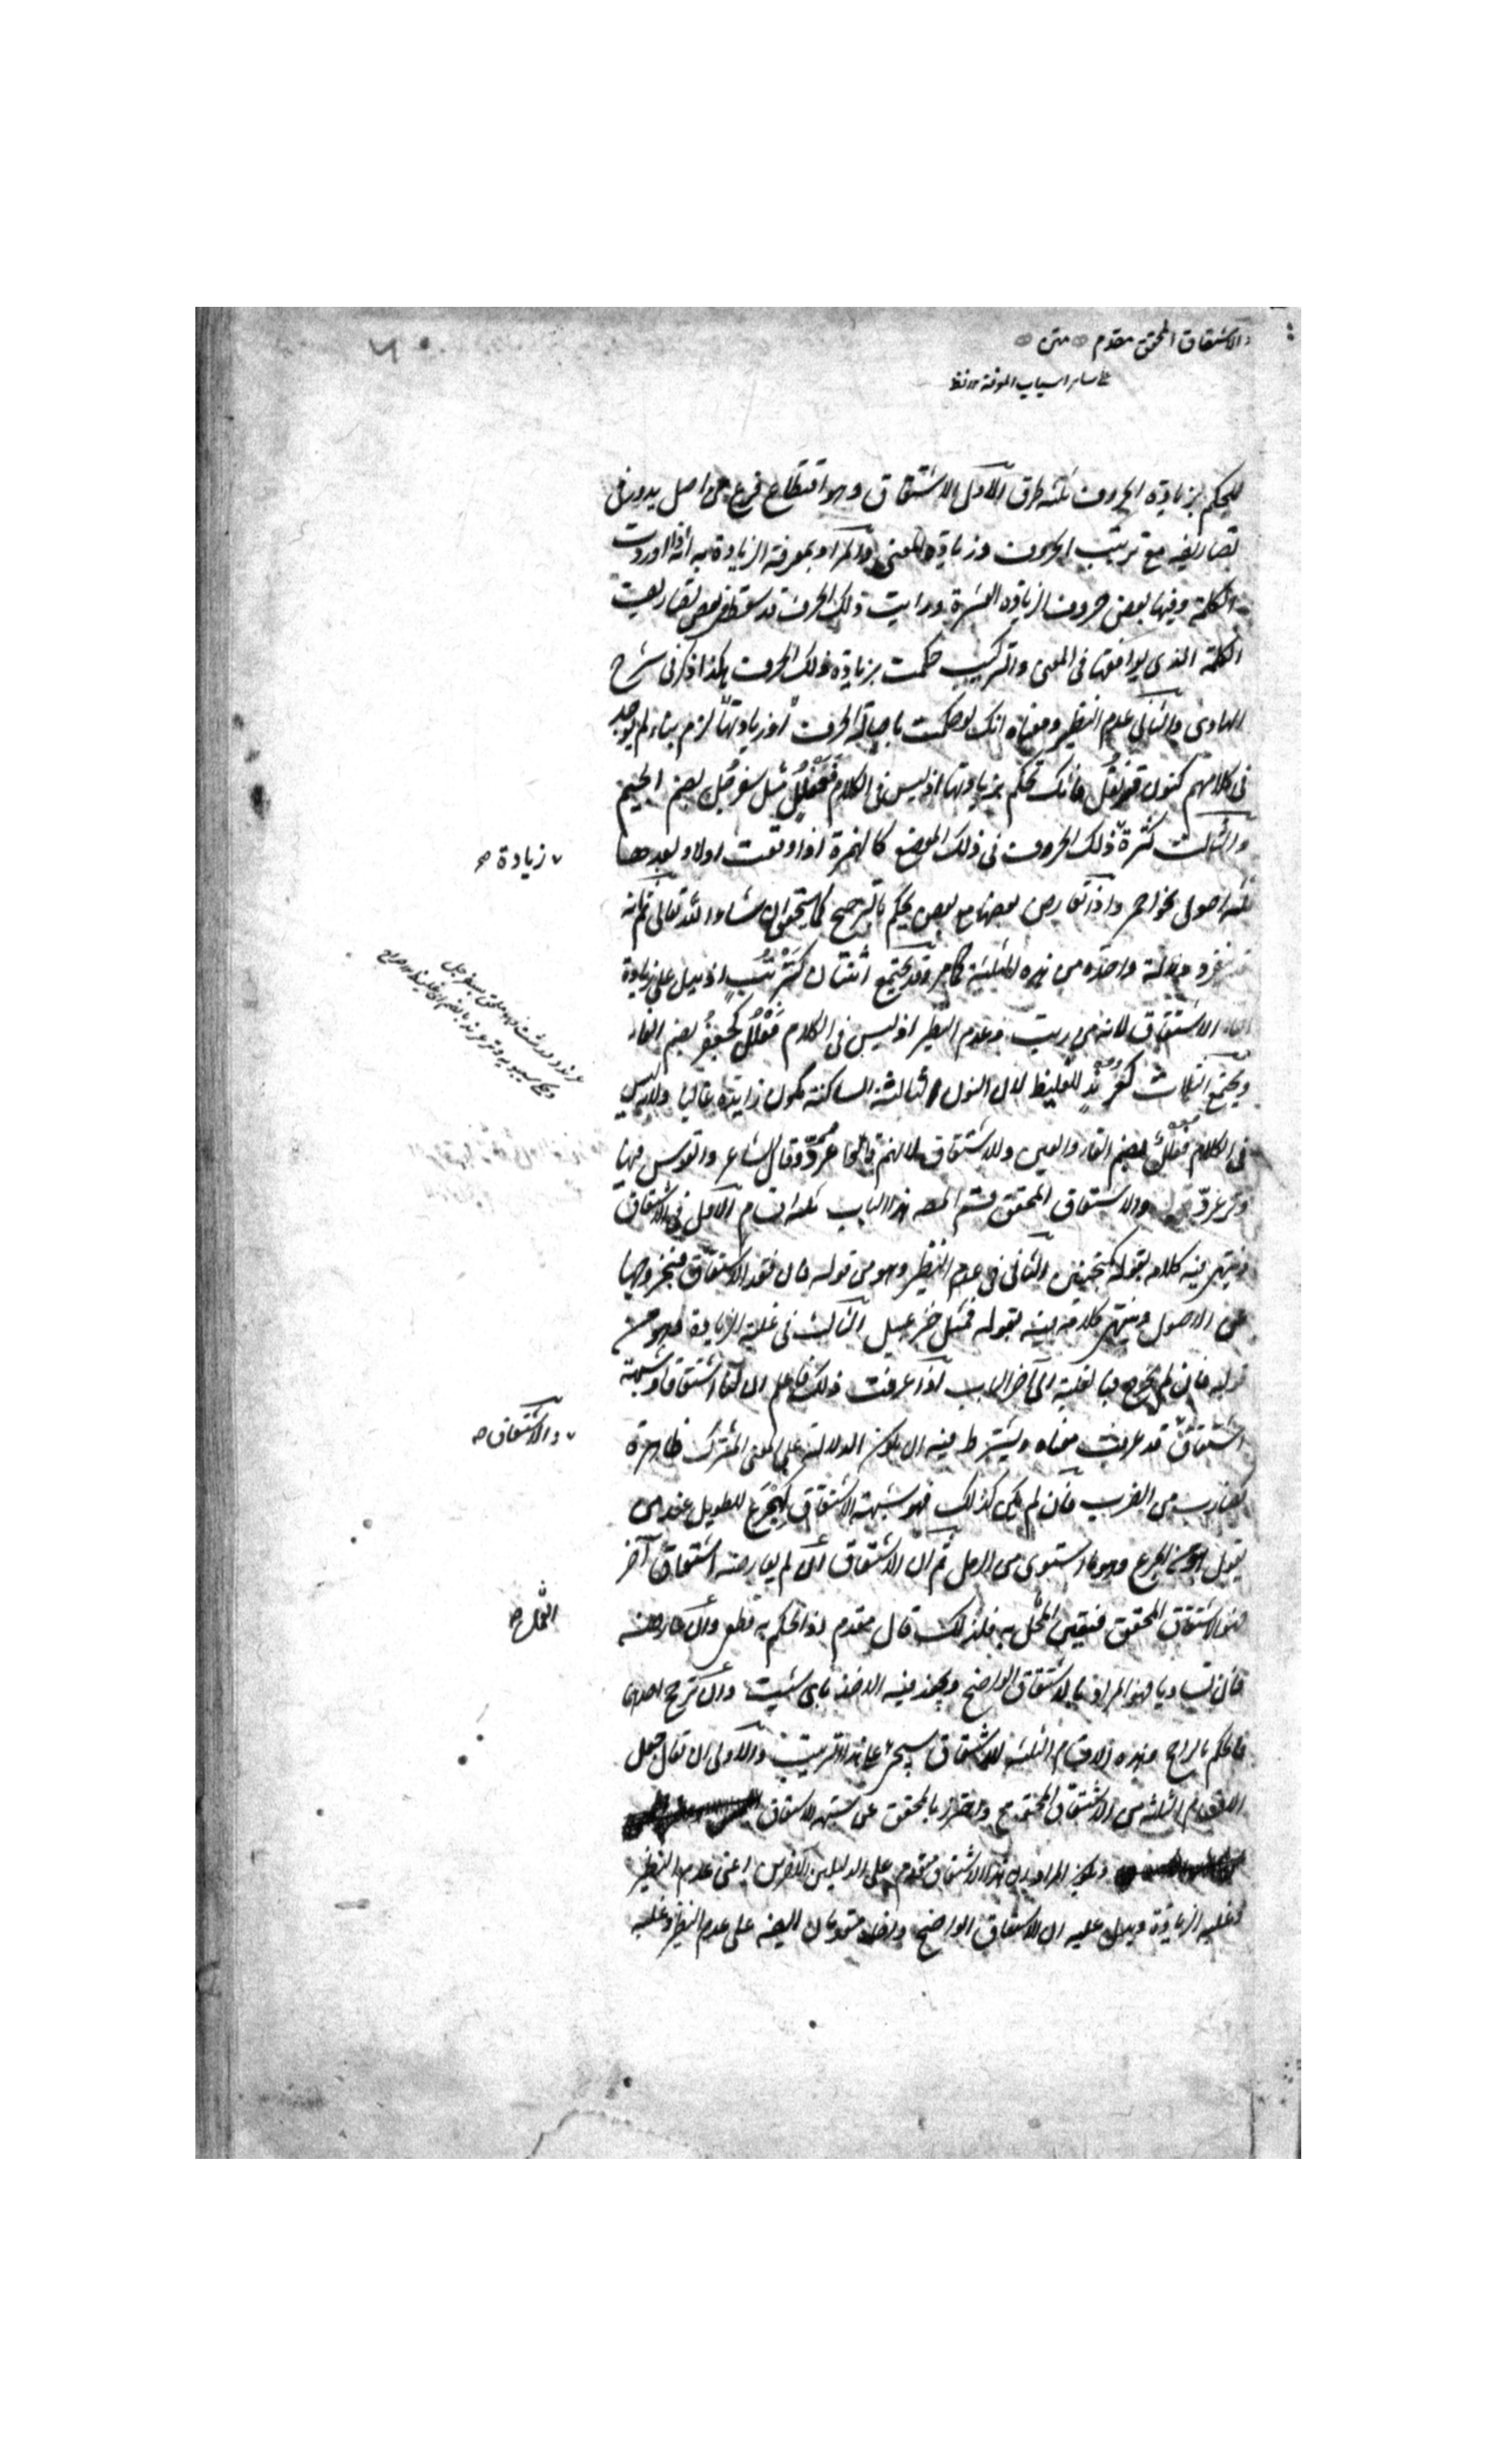 والاشتقاق المحقق مقدم متن
على سائر اسباب المعرفة
للحكم بزيادة الحروف ثلثة طرق الاول الاشتقاق وهو اقتطاع فرع من اصل يدور فى
تصاريفه مع ترتيب الحروف وزيادة المعنى والمراد بمعرفة الزيادة به انه اذا وردت
الكلمة وفيها بعض حروف الزيادة العشرة ورايت ذلك الحرف قد سقط فى بعض تصاريف
الكلمة الذى يوافقها فى المعنى والتركيب حكمت بزيادة ذلك الحرف هكذا ذكر فى شرح
الهادى والثانى عدم النظير ومعناه انك لو حكمت باصالة الحرف او زيادتها لزم بناء لم يوجد
فى كلامهم كنون قرنفل فانك تحكم بزيادتها اذ ليس فى الكلام فعلل مثل سفرجل بضم الجيم
والثالث كثرة ذلك الحرف فى ذلك الموضع كالهمزة اذا وقعت اولا وبعدها
زيادة صح
ثلثة اصول نحو احمر واذا تعارض بعضها مع بعض يحكم بالترجيح كما ستحقق ان شاء الله تعالى ثم انه
ينفرد دلالة واحدة من هذه الثلثة كما مر وقد يجتمع اثنتان كترتب اذ يدل على زيادة
التاء الاشتقاق لانه من رتب وعدم النظير اذ ليس فى الكلام فعلل كجعفر بضم الفاء
ويجتمع الثلاث كعرند للغليظ لان النون الثالثة الساكنة تكون زايدة غالبا ولانه ليس
فى الكلام فعلل بضم الفاء والعين وللاشتقاق لانهم قالوا عرد وقال الشاعر والقوس فيها
وتر عرد والاشتقاق المحقق قسم المص هذا الباب ثلثة اقسام الاول فى الاشتقاق
وينتهى فيه كلامه بقوله كمنجنين والثانى فى عدم النظير وهو من قوله فان فقد الاشتقاق فبخروجها
عن الاصول وينتهى كلامه فيه بقوله فمثل خزعبيل الثالث فى غلبة الزيادة وهو من
قوله فان لم تخرج فبالغلبة الى آخر الباب اذا عرفت ذلك فاعلم ان لنا اشتقاقا وشبهة
اشتقاق قد عرفت معناه ويشترط فيه ان يكون الدلالة على المعنى المشترك ظاهرة
والاشتقاق صح
كضارب من الضرب فان لم يكن كذلك فهو شبهة الاشتقاق كهجرع للطويل عند من
يقول انه من الجرع وهو ما استوى من الرمل ثم ان الاشتقاق ان لم يعارضه اشتقاق آخر
فهو الاشتقاق المحقق فيتعين العمل به فلذلك قال مقدم اذ الحكم به قطعى وان عارضه
العمل صح
فان تساويا فهو المراد بالاشتقاق الواضح ويجوز فيه الاخذ بايهما شئت وان ترجح احدهما
فالحكم بالراجح وهذه الاقسام الثلثة للاشتقاق سيجئ على هذا الترتيب والاولى ان يقال جعل
الاقسام الثلثة من الاشتقاق المحقق واحترز بالمحقق عن شبهة الاشتقاق
ويكون المراد ان هذا الاشتقاق مقدم على الدليلين الآخرين اعنى عدم النظير
وغلبة الزيادة ويدل عليه ان الاشتقاق الواضح مقدمان ايضا على عدم النظير وغلبة